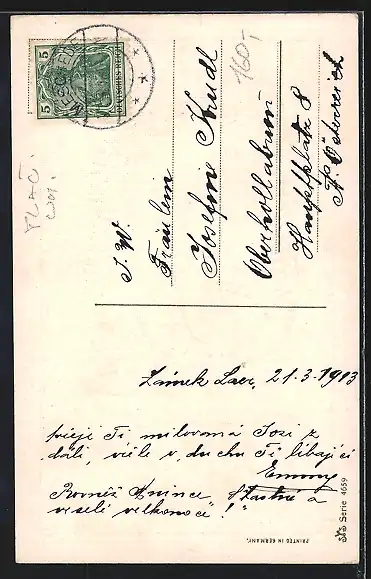 5
5
DEUTSCHES REICH
160.-
I. W.
Fräulein
Josefine Knedl
Oberhollabrunn
Hauptplatz 8
N. Österreich
Zámek Laer, 21.3.1913
přeje Ti milovaná Josi z
dáli, vřele v duchu Ti líbající
Emmy
"Šťastné a
veselé velkonoce!"
PRINTED IN GERMANY.
Serie 4659